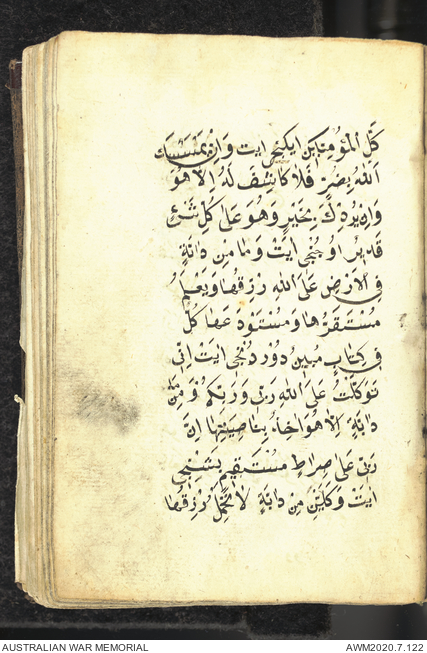 كَّلِ الْمُؤْمِنُونَ ايكنجى ايت وَاِنْ يَمْسَسْكَ
اللّٰهُ بِضُرٍّ فَلَا كَاشِفَ لَهُ اِلَّا هُوَ
وَاِنْ يُرِدْكَ بِخَيْرٍ وَهُوَ عَلَى كُلِّ شَىْءٍ
قَدِيرٌ اوچنجى ايت وَمَا مِنْ دَابَّةٍ
فِى الْاَرْضِ عَلَى اللّٰهِ رِزْقُهَا وَيَعْلَمُ
مُسْتَقَرَّهَا وَمُسْتَوْدَعَهَا كُلٌّ
فِى كِتَابٍ مُبِينٍ دوردنجى ايت اِنِّى
تَوَكَّلْتُ عَلَى اللّٰهِ رَبِّى وَرَبِّكُمْ وَمِنْ
دَابَّةٍ اِلَّا هُوَ اٰخِذٌ بِنَاصِيَتِهَا اِنَّ
رَبِّى عَلَى صِرَاطٍ مُسْتَقِيمٍ بشنجى
ايت وَكَاَيِّنْ مِنْ دَابَّةٍ لَا تَحْمِلُ رِزْقَهَا
AUSTRALIAN WAR MEMORIAL
AWM2020.7.122